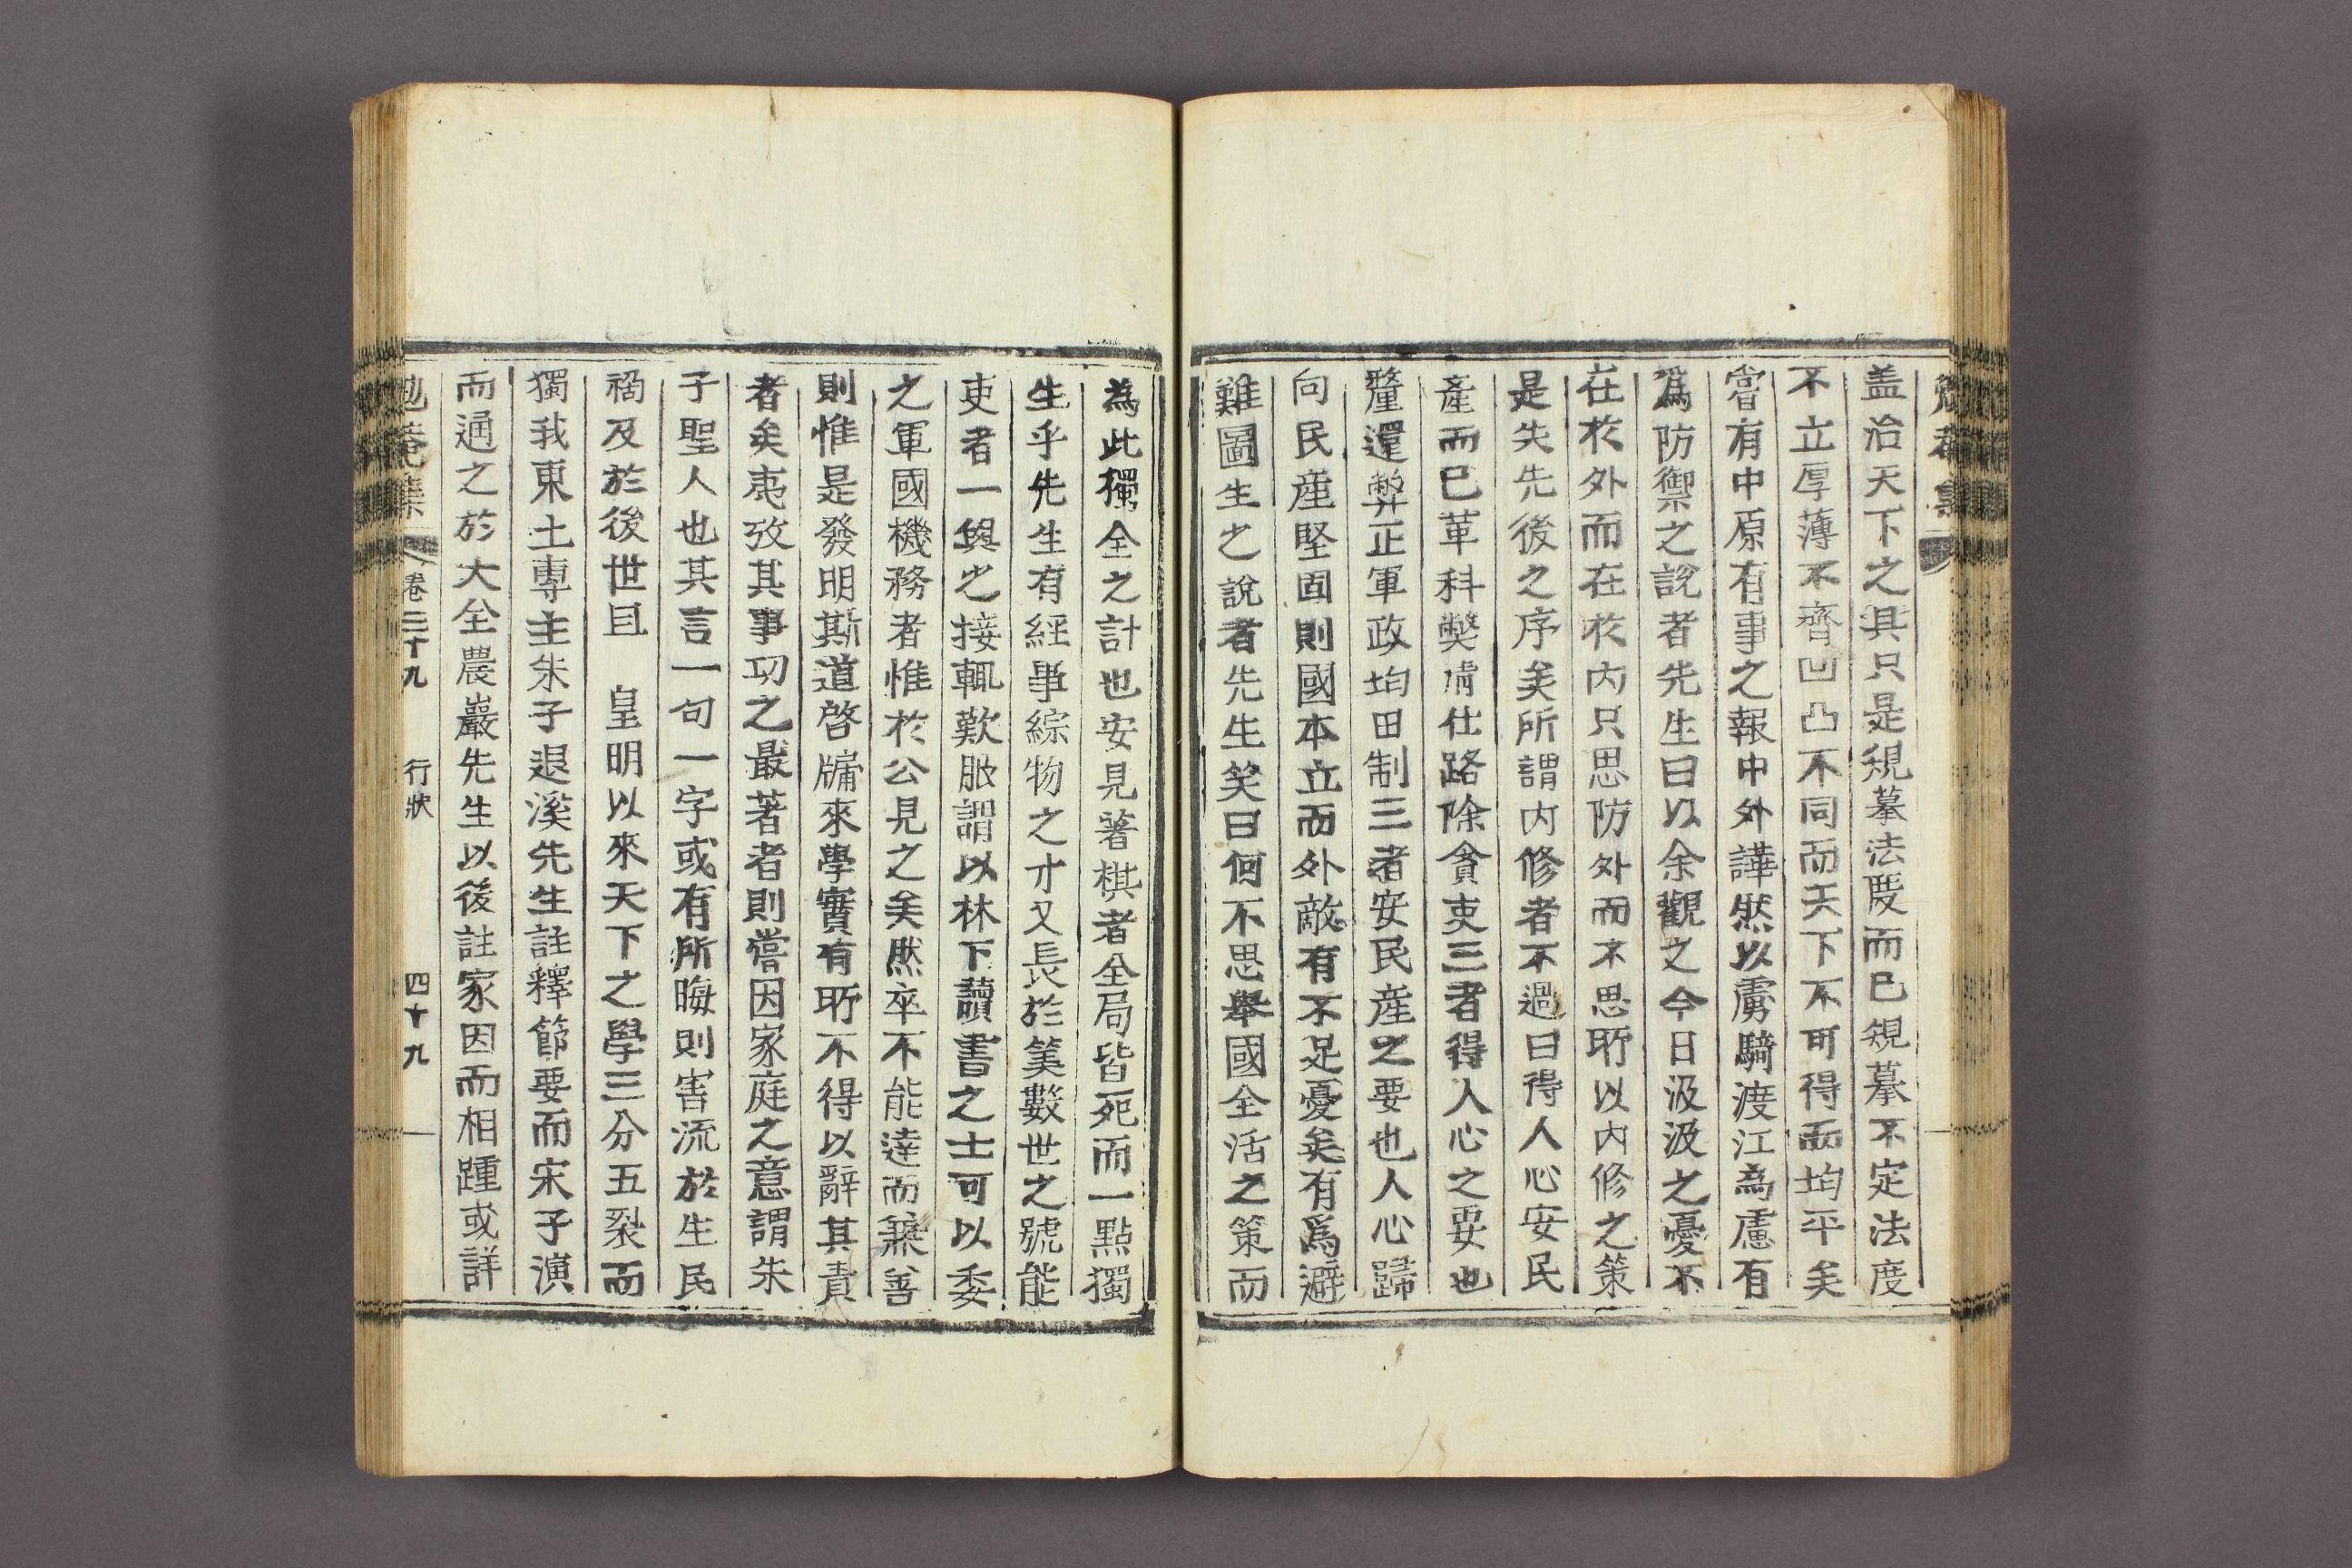 盖治天下之具只是䂓摹法度而已䂓摹不定法度
不立厚薄不齊凹凸不同而天下不可得而均平矣
嘗有中原有事之報中外譁然以虜騎渡江為慮有
爲防禦之說者先生曰以余觀之今日汲汲之憂不
在於外而在於內只思防外而不思所以內修之策
是失先後之序矣所謂內修者不過曰得人心安民
產而已革科弊淸仕路除貪吏三者得人心之要也
釐還弊正軍政均田制三者安民産之要也人心歸
向民産堅固則國本立而外敵有不足憂矣有爲避
難圖生之說者先生笑曰何不思擧國全活之策而
為此獨全之計也安見著棋者全局皆死而一點獨
生乎先生有經事綜物之才又長於筭數世之號能
吏者一與之接輒歎服謂以林下讀書之士可以委
之軍國機務者惟於公見之矣然卒不能達而兼善
則惟是發明斯道啓牖來學實有所不得以辭其責
者矣夷攷其事功之最著者則嘗因家庭之意謂朱
子聖人也其言一句一字或有所晦則害流於生民
禍及於後世且　皇明以來天下之學三分五裂而
獨我東土專主朱子退溪先生註釋節要而宋子演
而通之於大全農巖先生以後註家因而相踵或詳
勉菴集 卷三十九 行狀 四十九